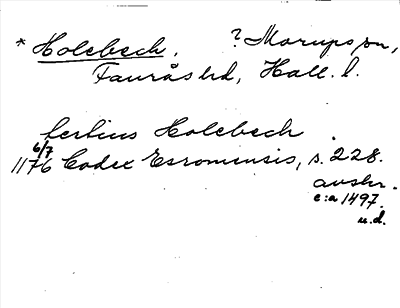 * Holebech. ? Morups sn,
Faurås hd, Hall. l.
tertius Holebech.
6/7
1176 Codex Esromensis, s. 228.
avskr.
c:a 1497.
u.d.